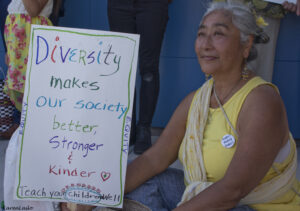 Diversity
makes
our society
better,
Stronger
&
Kinder ♡
Teach your children well
EQUITY
EQUITY